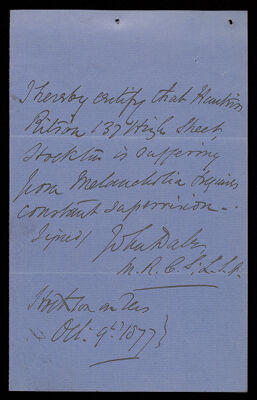 I hereby certify that
Ritson 137 High Street,
Stockton is suffering
from Melancholia & requires
constant supervision -.
Signed/ John Dale
M.R.C.S. L.S.A.
Stockton on Tees
Oct. 9th 1877}